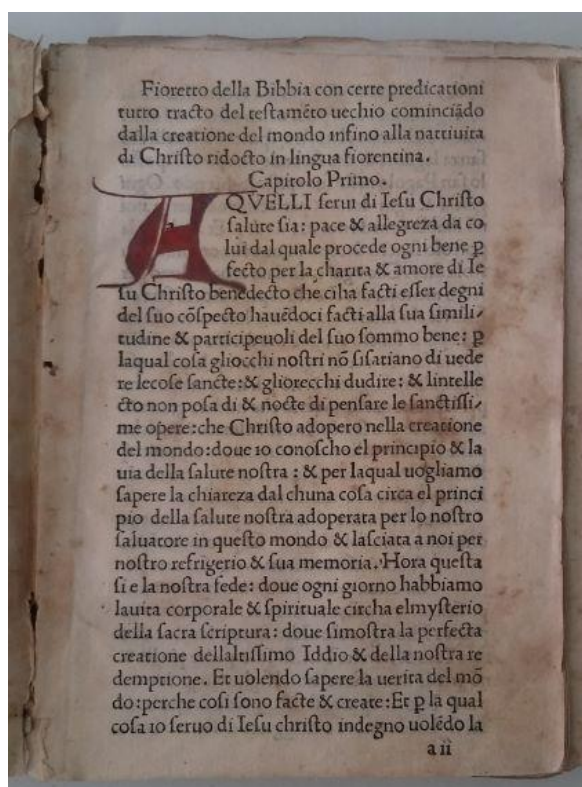 Fioretto della Bibbia con certe predicationi
tutto tracto del teſtamẽto uechio cominciãdo
dalla creatione del mondo infino alla natiuita
di Chriſto ridocto in lingua fiorentina.
Capitolo Primo.
AQVELLI ſerui di Ieſu Chriſto
ſalute ſia: pace & allegreza da co
lui dal quale procede ogni bene ꝑ
fecto per la charita & amore di Ie
ſu Chriſto benedecto che ciha facti eſſer degni
del ſuo cõſpecto hauẽdoci facti alla ſua ſimili⸗
tudine & participeuoli del ſuo ſommo bene: ꝑ
laqual coſa gliocchi noſtri nõ ſiſatiano di uede
re lecoſe ſancte: & gliorecchi dudire: & lintelle
cto non poſa di & nocte di penſare le ſanctiſſi⸗
me opere: che Chriſto adopero nella creatione
del mondo: doue io conoſcho el principio & la
uia della ſalute noſtra : & per laqual uogliamo
ſapere la chiareza dal chuna coſa circa el princi
pio della ſalute noſtra adoperata per lo noſtro
ſaluatore in queſto mondo & laſciata a noi per
noſtro refrigerio & ſua memoria. Hora queſta
ſi e la noſtra fede: doue ogni giorno habbiamo
lauita corporale & ſpirituale circha elmyſterio
della ſacra ſcriptura: doue ſimoſtra la perfecta
creatione dellaltiſſimo Iddio & della noſtra re
demptione. Et uolendo ſapere la uerita del mõ
do: perche coſi ſono facte & create: Et ꝑ la qual
coſa io ſeruo di Ieſu chriſto indegno uolẽdo la
a ii